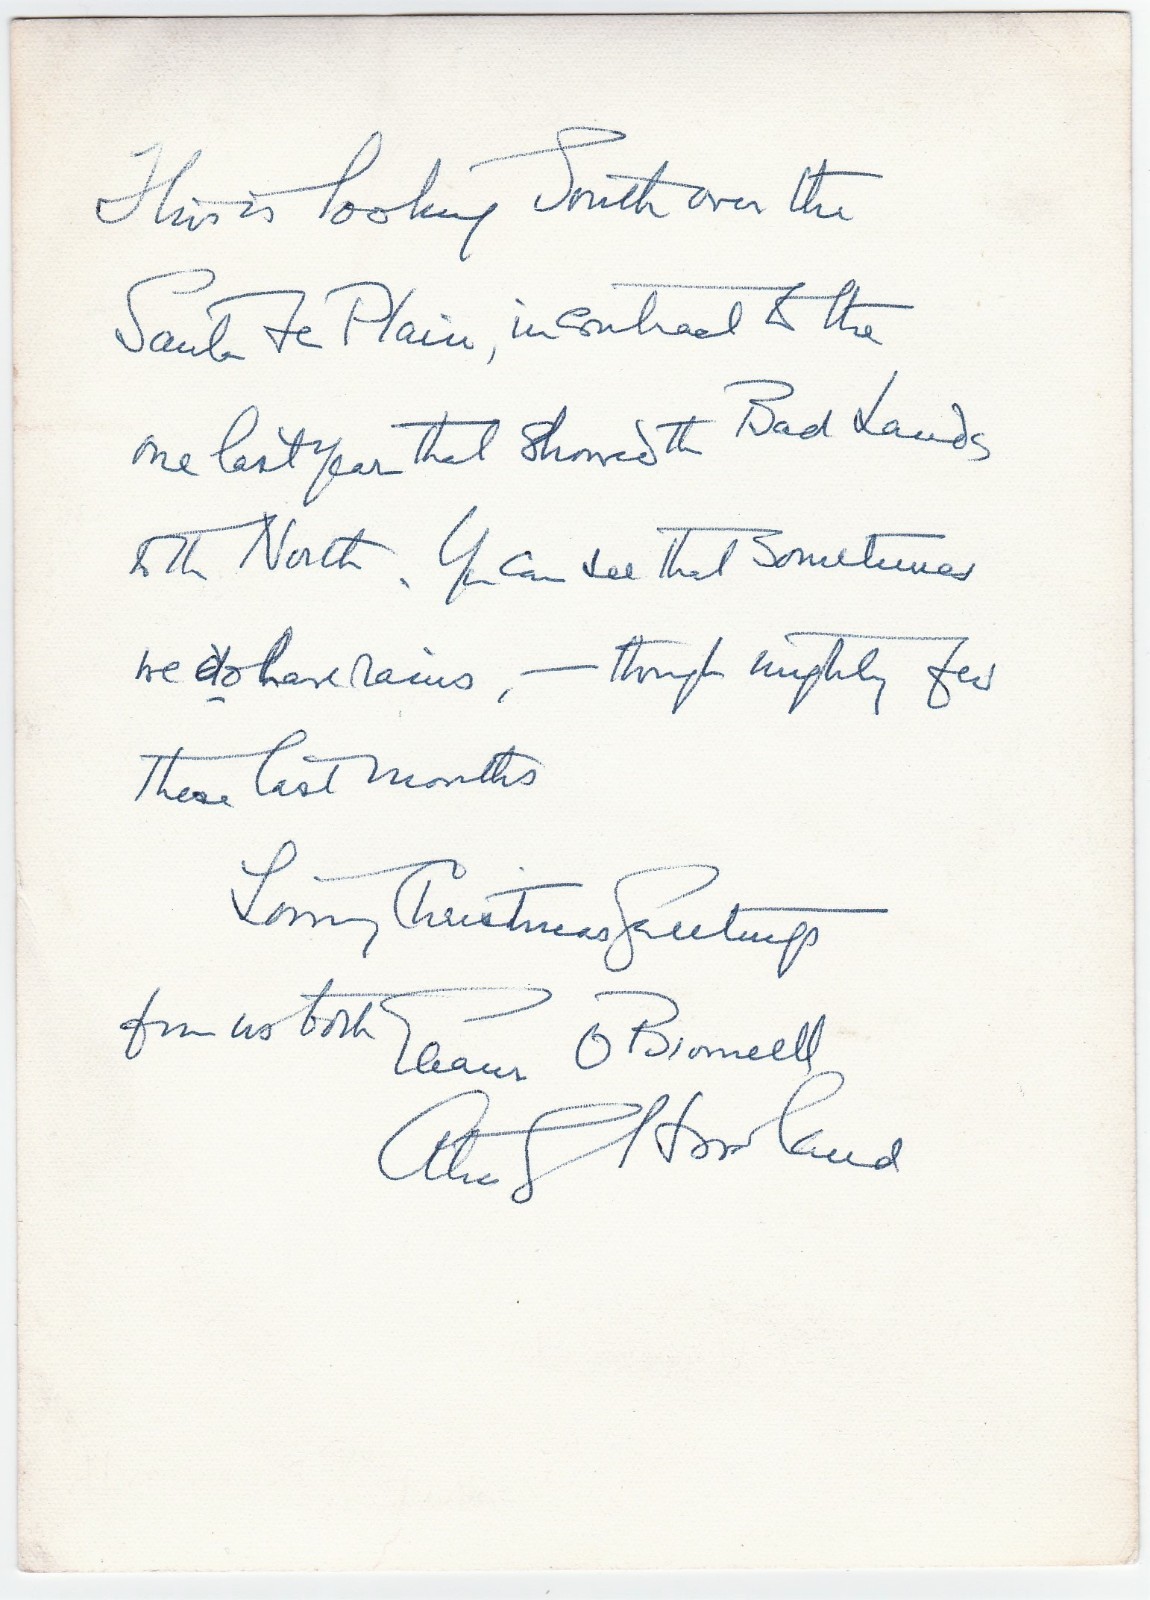 This is looking South over the
Santa Fe Plain, in contrast to the
one last year that showed the Bad Lands
to the North. You can see that sometimes
we do have rains, — though mighty few
these last months
Loving Christmas Greetings
from us both Eleanor O Brownell
Alice G Howland